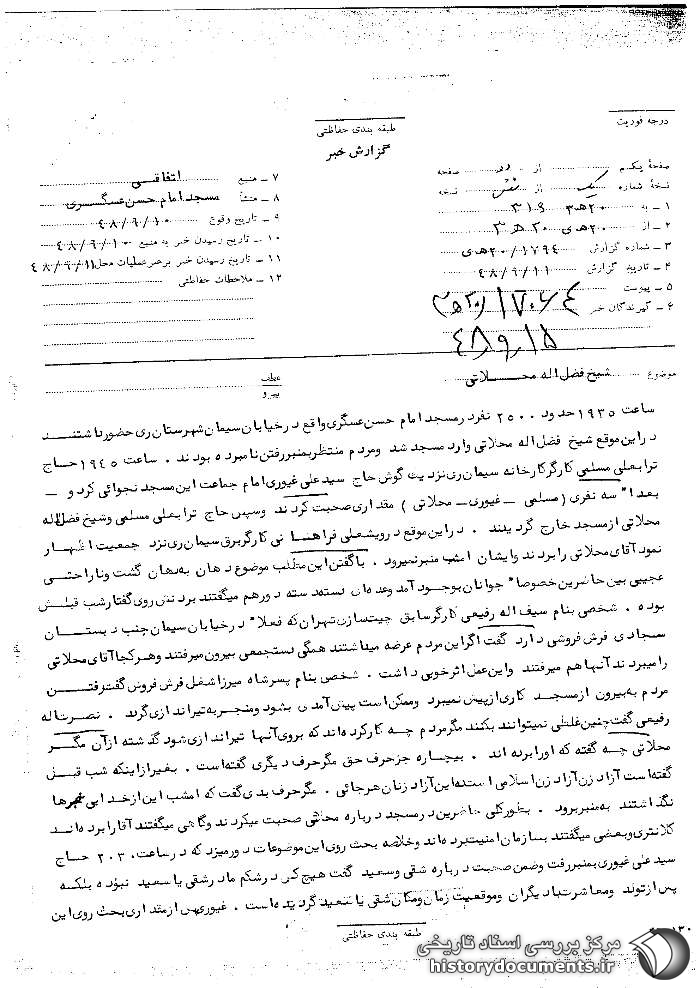 درجه فوریت
طبقه بندی حفاظتی
گزارش خبر
صفحهٔ یکم از دو صفحه
نسخهٔ شماره یک از شش نسخه
۱ - به ۲۰هـ۳ ۳۱۶
۲ - از ۲۰هـی ۲۰هـ۳
۳ - شماره گزارش ۲۰/۱۷۹۴هـی
۴ - تاریخ گزارش ۴۸/۹/۱۱
۵ - پیوست
۶ - گیرندگان خبر
۴۸/۹/۱۵
۷ - منبع اتفاقی
۸ - منشأ مسجد امام حسن عسگری
۹ - تاریخ وقوع ۴۸/۹/۱۰
۱۰ - تاریخ رسیدن خبر به منبع ۴۸/۹/۱۰
۱۱ - تاریخ رسیدن خبر برهبر عملیات محل ۴۸/۹/۱۱
۱۲ - ملاحظات حفاظتی
موضوع شیخ فضل اله محلاتی
عطف
پیرو
ساعت ۱۹۳۵ حدود ۲۵۰۰ نفر در مسجد امام حسن عسگری واقع در خیابان سیمان شهرستان ری حضور داشتند
در این موقع شیخ فضل اله محلاتی وارد مسجد شد و مردم منتظر بمنبر رفتن نامبرده بودند . ساعت ۱۹۴۵ حاج
ترابعلی مسلمی کارگر کارخانه سیمان ری نزد یک گوش حاج سید علی غیوری امام جماعت این مسجد نجوائی کرد و -
بعدا" سه نفری ( مسلمی - غیوری - محلاتی ) مقداری صحبت کردند وسپس حاج ترابعلی مسلمی وشیخ فضل اله
محلاتی از مسجد خارج گردیدند . در این موقع درویشعلی فراهانی کارگر برق سیمان ری نزد جمعیت اظهار
نمود آقای محلاتی را بردند وایشان امشب منبر نمیرود . با گفتن این مطلب موضوع دهان به دهان گشت وناراحتی
عجیبی بین حاضرین خصوصا" جوانان بوجود آمد وعده ای دسته دسته دورهم میگفتند بردنش روی گفتار شب قبلش
بوده . شخصی بنام سیف اله رفیعی کارگر سابق چیت سازی تهران که فعلا" در خیابان سیمان جنب دبستان
سجادی فرش فروشی دارد گفت اگر این مردم عرضه میداشتند همگی دستجمعی بیرون میرفتند وهر کجا آقای محلاتی
را میبردند آنها هم میرفتند واین عمل اثر خوبی داشت . شخصی بنام پسرشاه میرزا شغل فرش فروش گفت رفتن
مردم به بیرون از مسجد کاری از پیش نمیبرد وممکن است پیش آمدی بشود ومنجر به تیراندازی گردد . نصرت اله
رفیعی گفت چنین غلطی نمیتوانند بکنند مگر مردم چه کار کرده اند که بروی آنها تیراندازی شود گذشته از آن مگر
محلاتی چه گفته که اورا برده اند . بیچاره جز حرف حق مگر حرف دیگری گفته است . بغیر از اینکه شب قبل
گفته است آزاد زن آزاد زن اسلامی است نه این آزاد زنان هرجائی . مگر حرف بدی گفت که امشب این از خدا بی خبرها
نگذاشتند به منبر برود . بطور کلی حاضرین در مسجد درباره محلاتی صحبت میکردند وگاهی میگفتند آقا را برده اند
کلانتری وبعضی میگفتند بسازمان امنیت برده اند وخلاصه بحث روی این موضوعات دور میزد که در ساعت ۲۰۳۰ حاج
سید علی غیوری بمنبر رفت وضمن صحبت درباره شقی وسعید گفت هیچ کس در شکم مادر شقی یا سعید نبوده بلکه
پس از تولد ومعاشرت با دیگران وموقعیت زمان ومکان شقی یا سعید گردیده است . غیوری پس از مقداری بحث روی این
طبقه بندی حفاظتی
مرکز بررسی اسناد تاریخی
historydocuments.ir